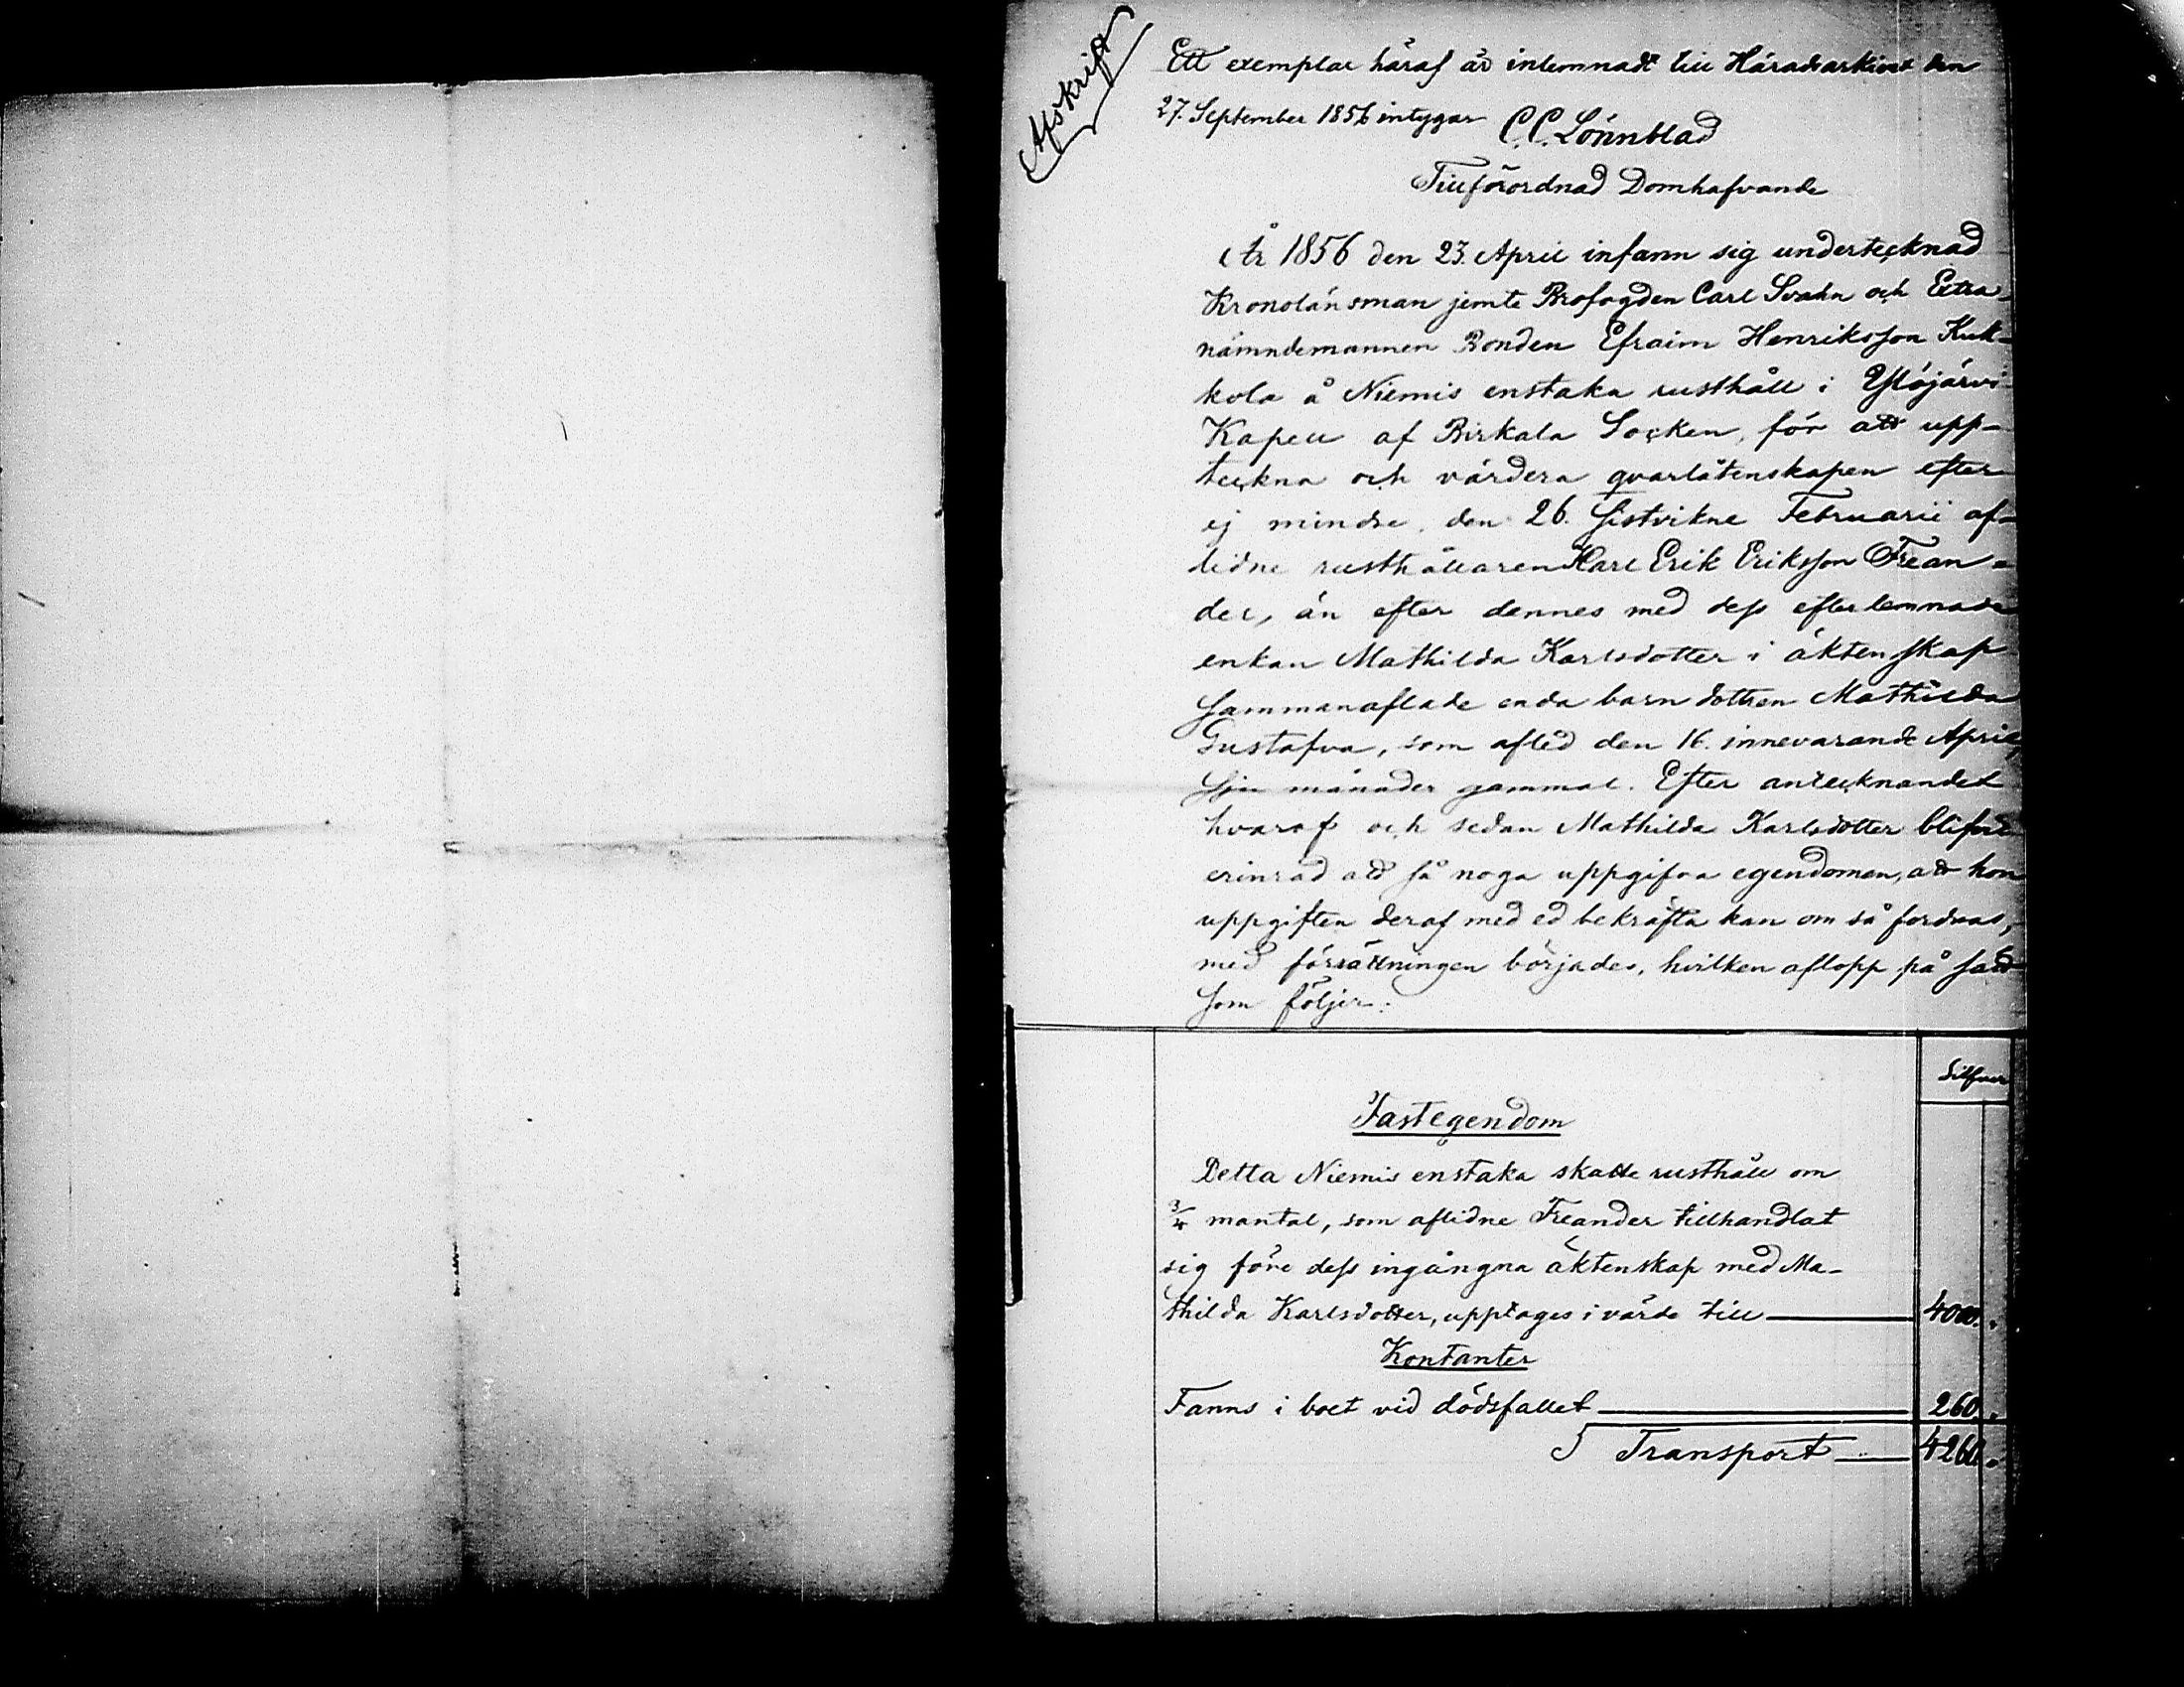 Afskrift
Ett exemplar häraf är inlemnadt till Häradsarkivet den
27. September 1856 intygar C. C. Lönnblad
Tillförordnad Domhafvande
År 1856 den 23. April infann sig undertecknad
Kronolänsman jemte Brofogden Carl Svahn och Extra
nämndemannen Bonden Efraim Henriksson Kuk-
kola å Niemis enstaka rusthåll i Ylöjärvi
Kapell af Birkala Socken, för att upp-
teckna och värdera qvarlåtenskapen efter
ej mindre den 26. sistvikne Februarii af-
lidne rusthållaren Karl Erik Eriksson Frean-
der, än efter dennes med dess efterlemnade
enkan Mathilda Karlsdotter i äktenskap
sammanaflade enda barn dottren Mathilda
Gustafva, som afled den 16. innevarande April,
sju månader gammal. Efter antecknandet
hvaraf och sedan Mathilda Karlsdotter blifvit
erinrad att så noga uppgifva egendomen, att hon
uppgiften deraf med ed bekräfta kan om så fordras,
med förrättningen börjades, hvilken aflopp på sätt
som följer:
Silfver
Fastegendom
Detta Niemis enstaka skatte rusthåll om
3/4 mantal, som aflidne Freander tillhandlat
sig före dess ingångna äktenskap med Ma-
thilda Karlsdotter, upptages i värde till 4000. "
Kontanter
Fanns i boet vid dödsfallet 260. "
Transport 4260 "